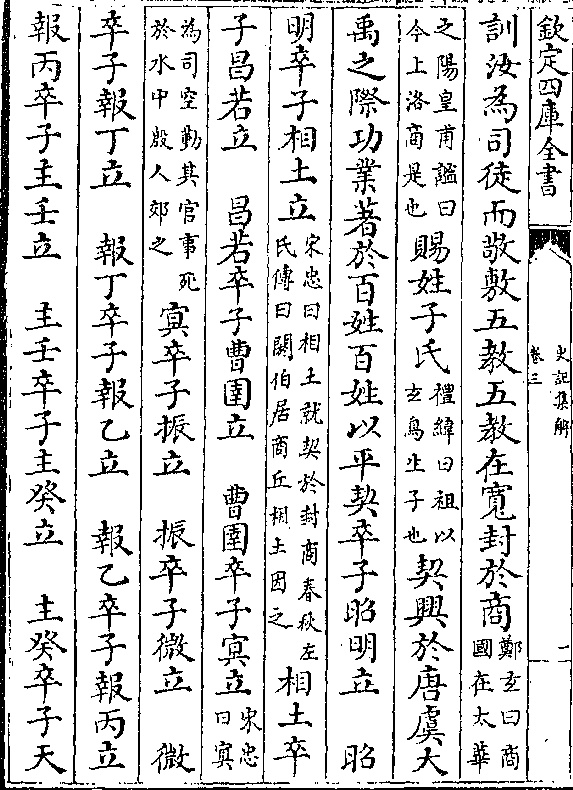 欽定四庫全書
史記集解
卷三
一
訓汝為司徒而敬敷五教五教在寛封於商
鄭玄曰商
國在太華
之陽皇甫謐曰
今上洛商是也
賜姓子氏
禮緯曰祖以
玄鳥生子也
契興於唐虞大
禹之際功業著於百姓百姓以平契卒子昭明立 昭
明卒子相土立
宋忠曰相土就契於封商春秋左
氏傳曰閼伯居商丘相土因之
相土卒
子昌若立 昌若卒子曹圉立 曹圉卒子冥立
宋忠
曰冥
為司空勤其官事死
於水中殷人郊之
冥卒子振立 振卒子微立 微
卒子報丁立 報丁卒子報乙立 報乙卒子報丙立
報丙卒子主壬立 主壬卒子主癸立 主癸卒子天